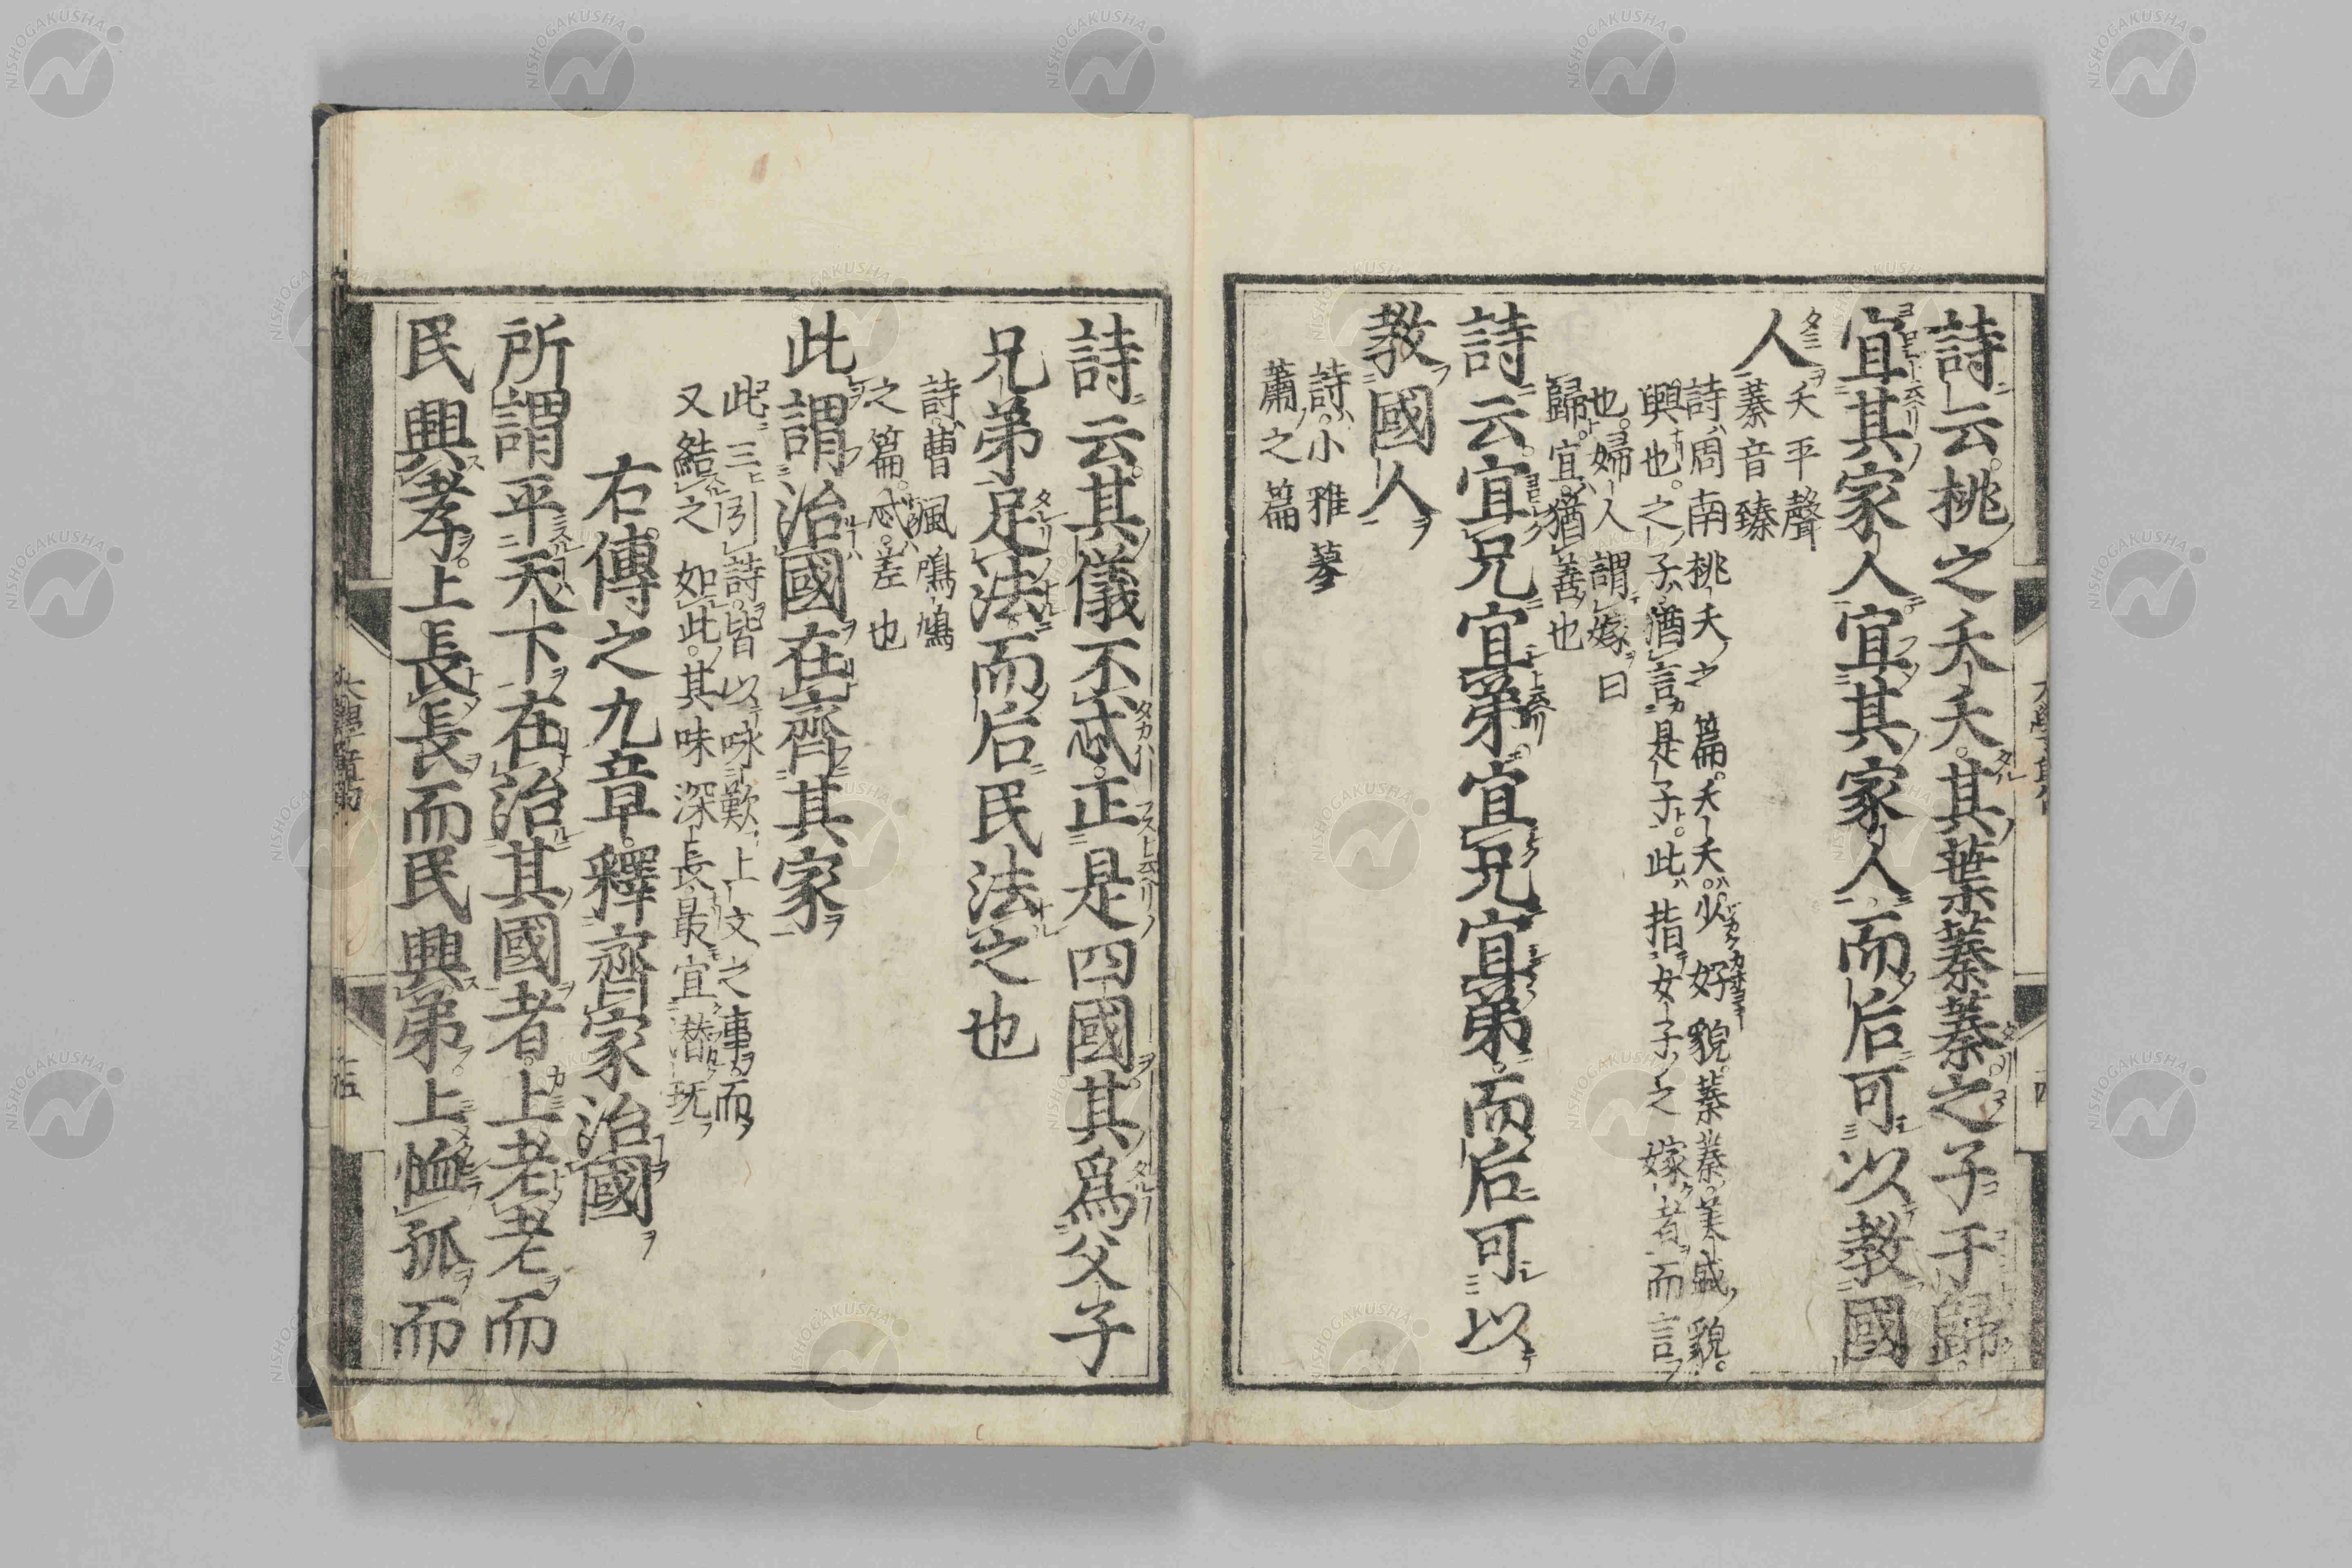 詩云桃之夭夭其葉蓁蓁之子于歸
宜其家人宜其家人而后可以教國
人
夭平聲
蓁音臻
詩周南桃夭之篇夭夭少好貌蓁蓁美盛貌
興也之子猶言是子此指女子之嫁者而言
也婦人謂嫁曰
歸宜猶善也
詩云宜兄宜弟宜兄宜弟而后可以
教國人
詩小雅蓼
蕭之篇
詩云其儀不忒正是四國其爲父子
兄弟足法而后民法之也
詩曹風鳲鳩
之篇忒差也
此謂治國在齊其家
此三引詩皆以咏歎上文之事而
又結之如此其味深長最宜潜玩
右傳之九章釋齊家治國
所謂平天下在治其國者上老老而
民興孝上長長而民興弟上恤孤而
NISHOGAKUSHA